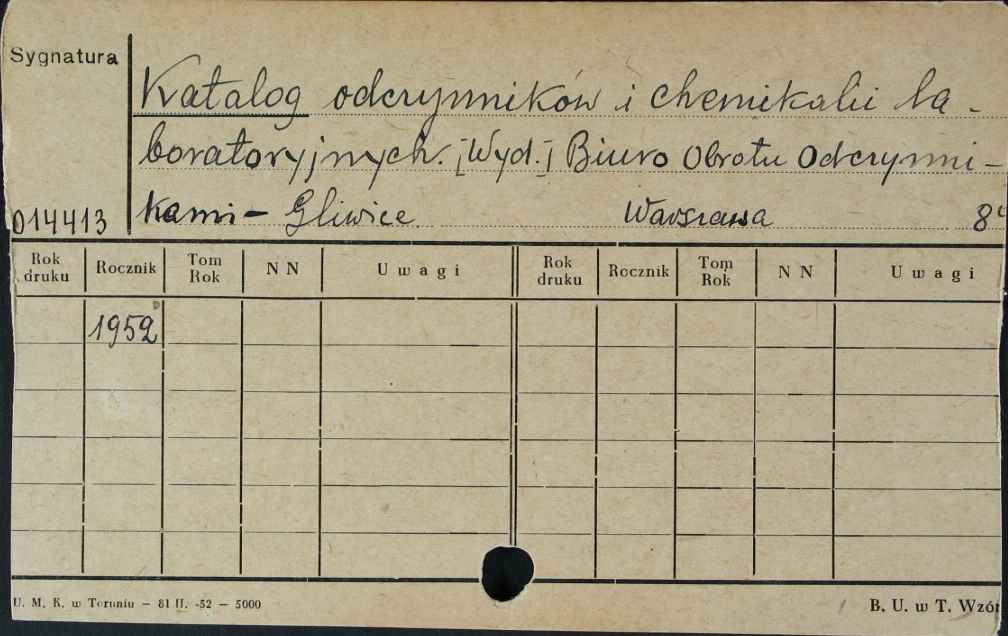 Sygnatura
Katalog odczynników i chemikalii la-
boratoryjnych. [Wyd.] Biuro Obrotu Odczynni-
014413 kami - Gliwice. Warszawa 8°
Rok druku Rocznik Tom Rok N N Uwagi Rok druku Rocznik Tom Rok N N Uwagi
1952
U. M. K. w Toruniu — 81 II. -52 — 5000 B. U. w T. Wzór